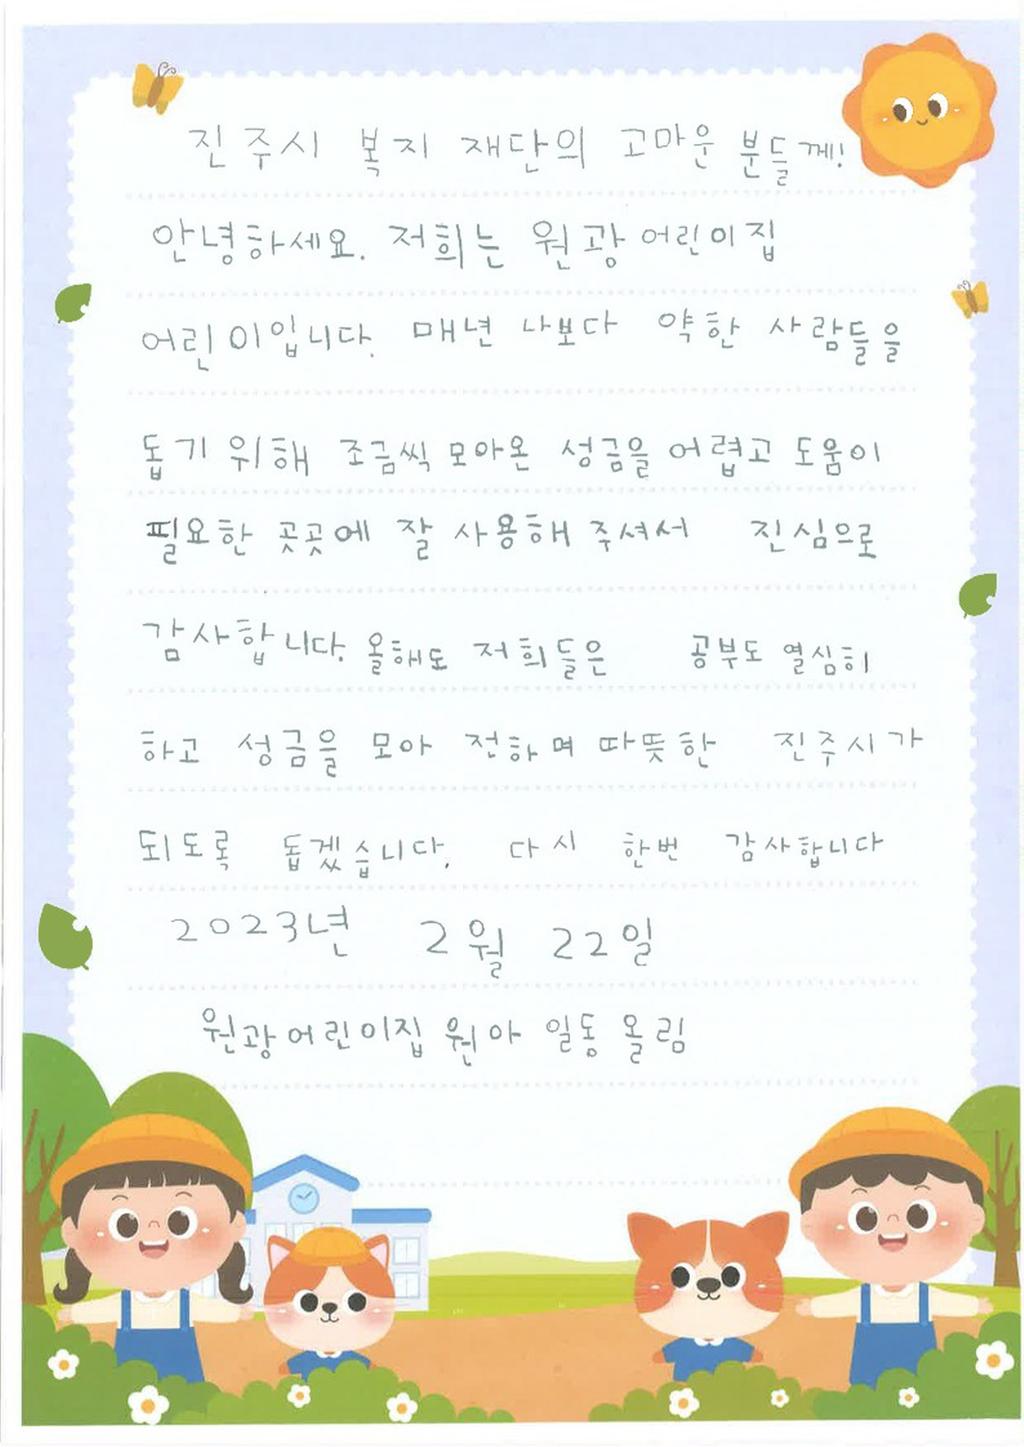 진주시 복지 재단의 고마운 분들께!
안녕하세요. 저희는 원광어린이집
어린이입니다. 매년 나보다 약한 사람들을
돕기 위해 조금씩 모아온 성금을 어렵고 도움이
필요한 곳곳에 잘 사용해 주셔서 진심으로
감사합니다. 올해도 저희들은 공부도 열심히
하고 성금을 모아 전하며 따뜻한 진주시가
되도록 돕겠습니다. 다시 한번 감사합니다
2023년 2월 22일
원광어린이집 원아 일동 올림